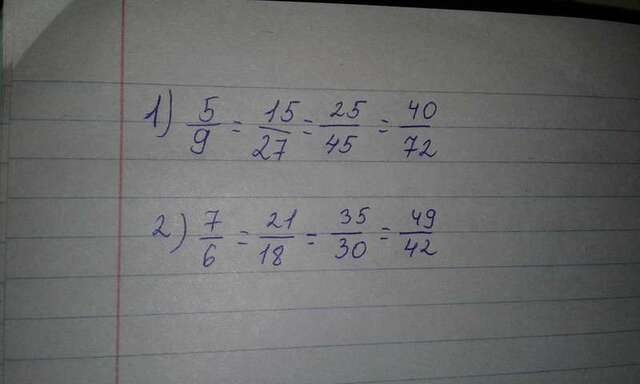 1) 5/9 = 15/27 = 25/45 = 40/72
2) 7/6 = 21/18 = 35/30 = 49/42